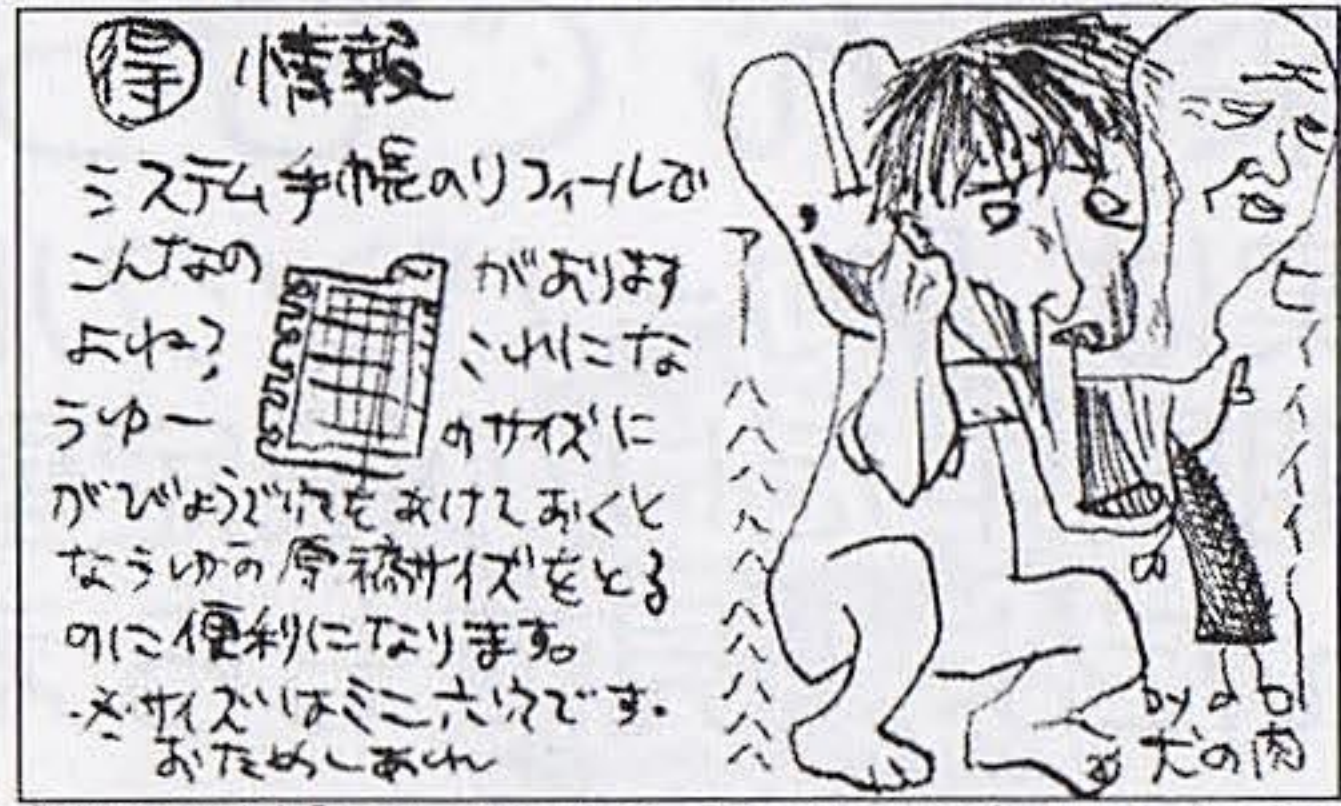 得 情報
システム手帳のリフィールで
こんなの がおります
よね? これにな
うゆー のサイズに
がびょうで穴をあけておくと
なうゆの原稿サイズをとる
のに便利になります。
※サイズはミニ六穴です。
おためしあれ
アーハハハハハハハハハ
ヒイイイイイイー
by
犬の肉